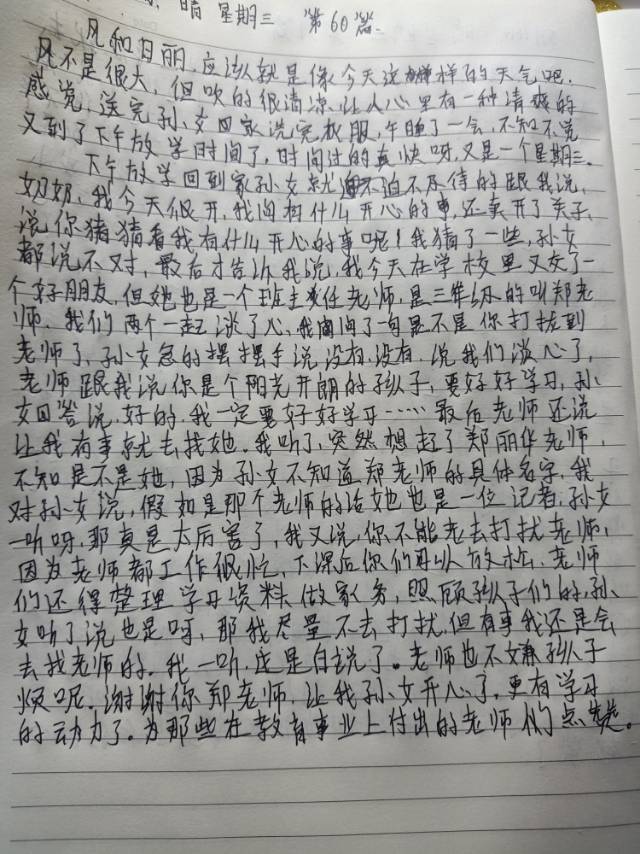 晴 星期三 第60篇.
风和日丽,应该就是像今天这样的天气吧.
风不是很大,但吹的很清凉,让人心里有一种清爽的
感觉,送完孙女回家洗完衣服,午睡了一会,不知不觉
又到了下午放学时间了,时间过的真快呀,又是一个星期三.
下午放学回到家孙女就迫不及待的跟我说,
奶奶,我今天很开,我问有什么开心的事,还卖开了关子,
说你猪猜看我有什么开心的事呢!我猜了一些,孙女
都说不对,最后才告诉我说,我今天在学校里又交了一
个好朋友,但她也是一个班主任老师,是三年级的叫郑老
师.我们两个一起谈了心,我问问了一句是不是你打扰到
老师了,孙女急的摆摆手说没有,没有,说我们谈心了,
老师跟我说你是个阳光开朗的孩子,要好好学习,孙
女回答说,好的,我一定要好好学习……最后老师还说
让我有事就去找她.我听了,突然想起了郑丽华老师,
不知是不是她,因为孙女不知道郑老师的具体名字,我
对孙女说,假如是那个老师的话她也是一位记者,孙女
一听呀,那真是太厉害了,我又说,你不能老去打扰老师,
因为老师都工作很忙,下课后你们可以放松,老师
们还得整理学习资料做家务,照顾孩子们的,孙
女听了说也是呀,那我尽量不去打扰,但有事我还是会
去找老师的.我一听,这是白说了。老师也不嫌孩子
烦呢.谢谢你郑老师,让我孙女开心了,更有学习
的动力了。为那些在教育事业上付出的老师们点赞.